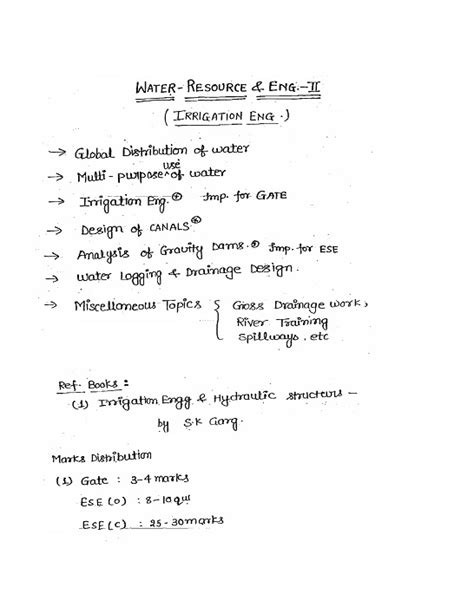 WATER-RESOURCE & ENG.-II
(IRRIGATION ENG.)
→ Global Distribution of water
use
→ Multi-purpose^of water
→ Irrigation Eng.® Imp. for GATE
→ Design of CANALS®
→ Analysis of Gravity Dams.® Imp. for ESE
→ Water Logging & Drainage Design.
→ Miscellaneous Topics { Cross Drainage work,
River Training
Spillways, etc
Ref. Books:
(1) Irrigation Engg & Hydraulic structurs -
by S.K Garg.
Marks Distribution
(1) Gate : 3-4 marks
ESE (O) : 8-10 qui
ESE (C) : 25-30 marks